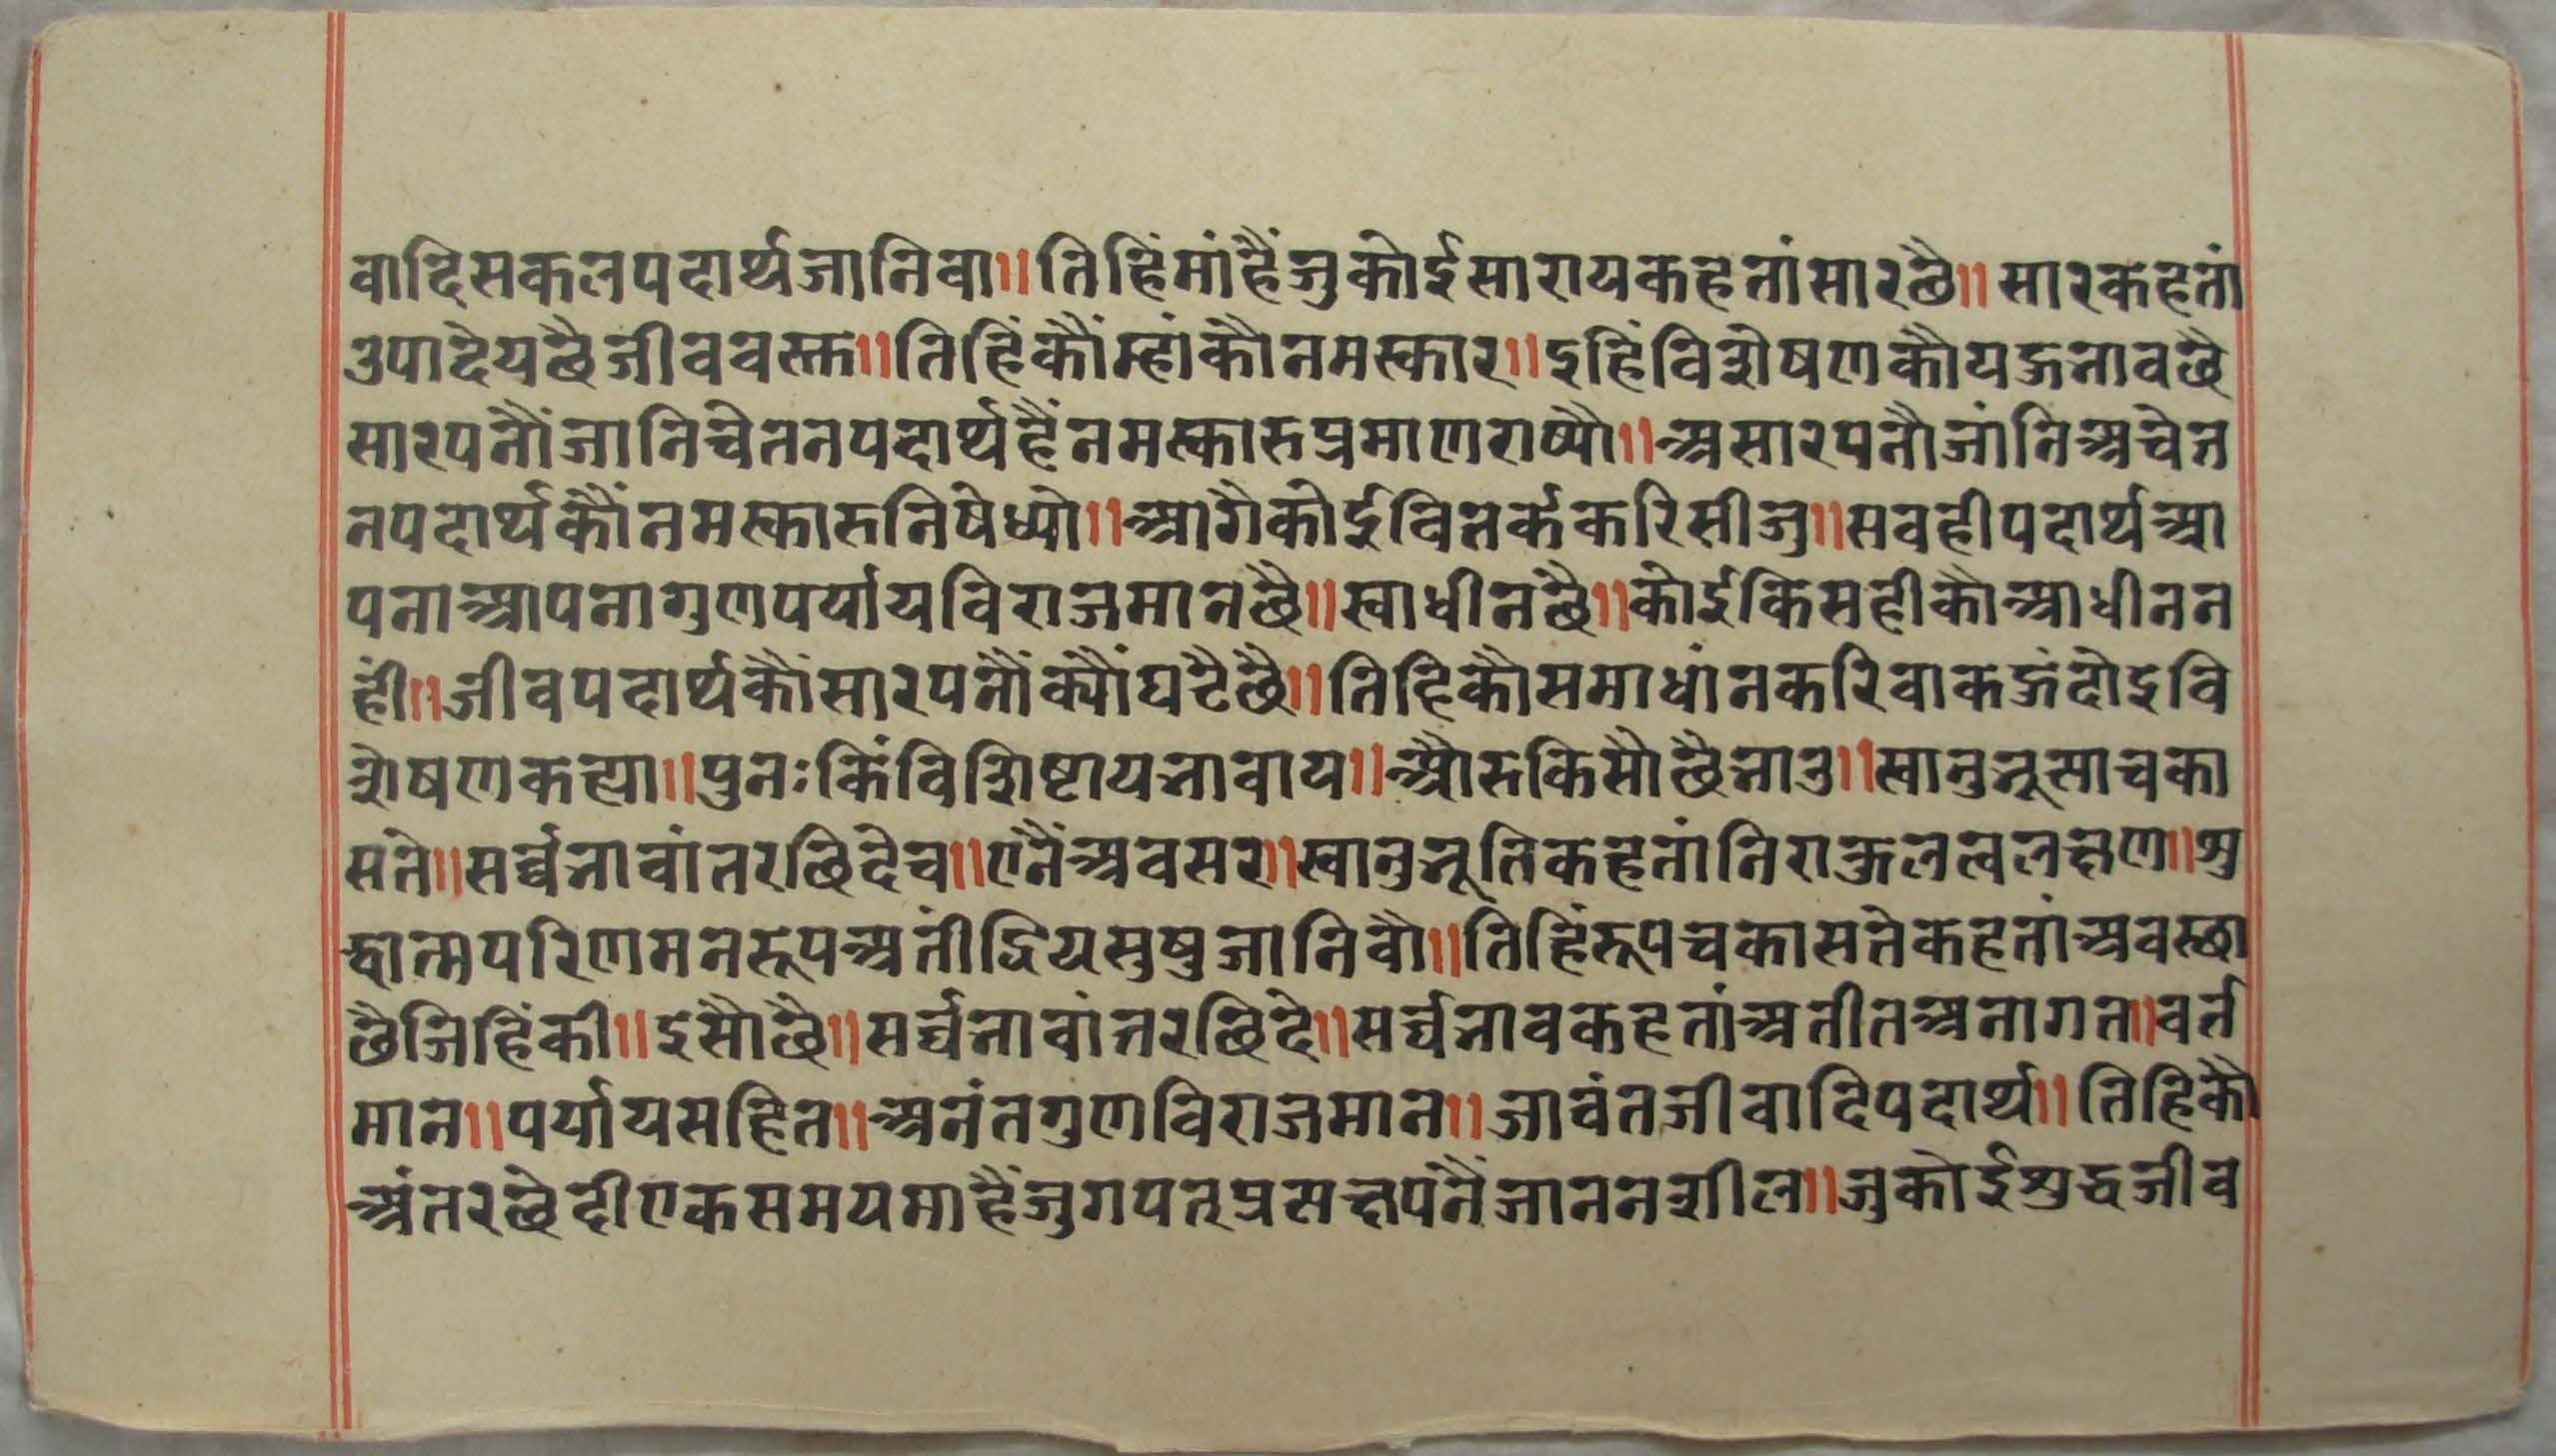 वादि सकल पदार्थ जानिवा॥ तिहिं मांहैं जु कोई साराय कहतां सार छै॥ सार कहतां
उपादेय छै जीव वस्त॥ तिहिं कौं म्हां कौ नमस्कार॥ इहिं विशेषण कौ यऊ भाव छै
सारपनौं जानि चेतन पदार्थ हैं नमस्कारु प्रमाण राष्यौ॥ असारपनौ जांनि अचेत
न पदार्थ कौं नमस्कारु निषेध्यो॥ आगै कोई वितर्क करिसी जु॥ सव ही पदार्थ आ
पना आपना गुण पर्याय विराजमान छै॥ स्वाधीन छै॥ कोई किसही कौ आधीन न
हीं॥ जीव पदार्थ कौं सारपनौं क्यौं घटै छै॥ तिहि कौ समाधांन करिवा कऊं दोइ वि
शेषण कह्या॥ पुनः किं विशिष्टाय भावाय॥ औरु किसौ छै भाउ॥ स्वानुभूसा चका
सते॥ सर्व्वभावांतरछिदे च॥ एनैं अवसर॥ स्वानुभूति कहतां निराकुलत्व लक्षण॥ शु
द्धात्म परिणमनरूप अतींद्रिय सुषु जानिवौ॥ तिहिं रूप चकासते कहतां अवस्छा
छै जिहिं की॥ इसौ छै॥ सर्व्वभावांतरछिदे॥ सर्व्वभाव कहतां अतीत अनागत॥ वर्त
मान॥ पर्याय सहित॥ अनंत गुण विराजमान॥ जावंत जीवादि पदार्थ॥ तिहि कौ
अंतरछेदी एक समय माहैं जुगपत् प्रत्यक्षपनैं जाननशील॥ जु कोई शुद्ध जीव